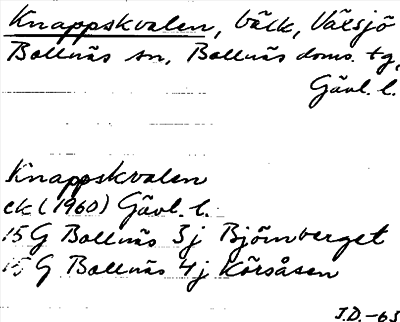 Knappskvalen, bäck, Växsjö
Bollnäs sn, Bollnäs doms. tg,
Gävl. l.
Knappskvalen
ek (1960) Gävl. l.
15 G Bollnäs 3j Björnberget
15 G Bollnäs 4j Körsåsen
J.D.-63